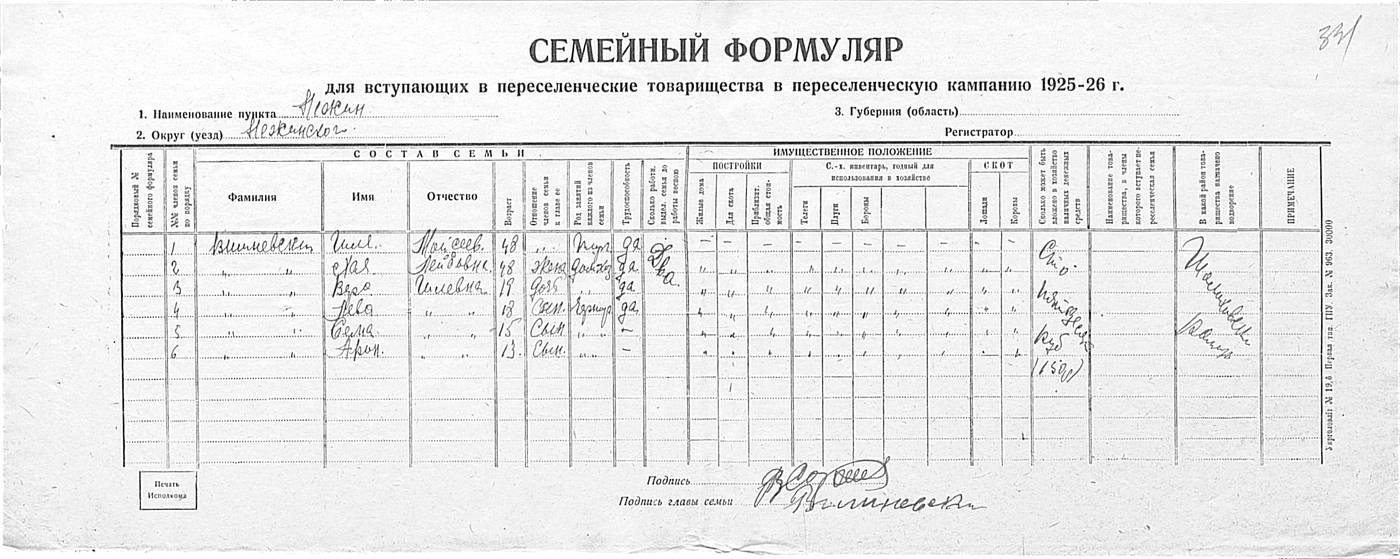 331
СЕМЕЙНЫЙ ФОРМУЛЯР
для вступающих в переселенческие товарищества в переселенческую кампанию 1925-26 г.
1. Наименование пункта Нежин
3. Губерния (область)
2. Округ (уезд) Нежинского
Регистратор
СОСТАВ СЕМЬИ
ИМУЩЕСТВЕННОЕ ПОЛОЖЕНИЕ
Порядковый № семейного формуляра
№№ членов семьи по порядку
Фамилия
Имя
Отчество
Возраст
Отношение членов семьи к главе ее
Род занятий каждого из членов семьи
Трудоспособность
Сколько работн. выдел. семья до работы весною
ПОСТРОЙКИ
Жилые дома
Для скота
Приблизит. общая стоимость
С.-х. инвентарь, годный для использования в хозяйстве
Телеги
Плуги
Бороны
СКОТ
Лошади
Коровы
Сколько может быть вложено в хозяйство наличных денежных средств
Наименование товарищества, в члены которого вступает переселенческая семья
В какой район товарищества назначено водворение
ПРИМЕЧАНИЕ
1 Вишневский Гиля Моисеев. 48 „ да Два — — — — — — — — — Сто
2 „ „ Хая Лейбовна 48 жена домхоз да „ „ „ „ „ „ „ „ „
3 „ „ Вера Гилевна 19 дочь „ да „ „ „ „ „ „ „ „ „ пятьдесят
4 „ „ Лева „ „ 18 сын. да „ „ „ „ „ „ „ „ „
5 „ „ Сема „ „ 15 Сын „ „ — „ „ „ „ „ „ „ „ „ руб
6 „ „ Арон. „ „ 13. Сын. „ „ — „ „ „ „ „ „ „ „ „
(150р)
Печать Исполкома
Подпись
Подпись главы семьи Вишневский
Укрголовлит № 19,б Первая тип. ГПУ. Зак. № 963 30000